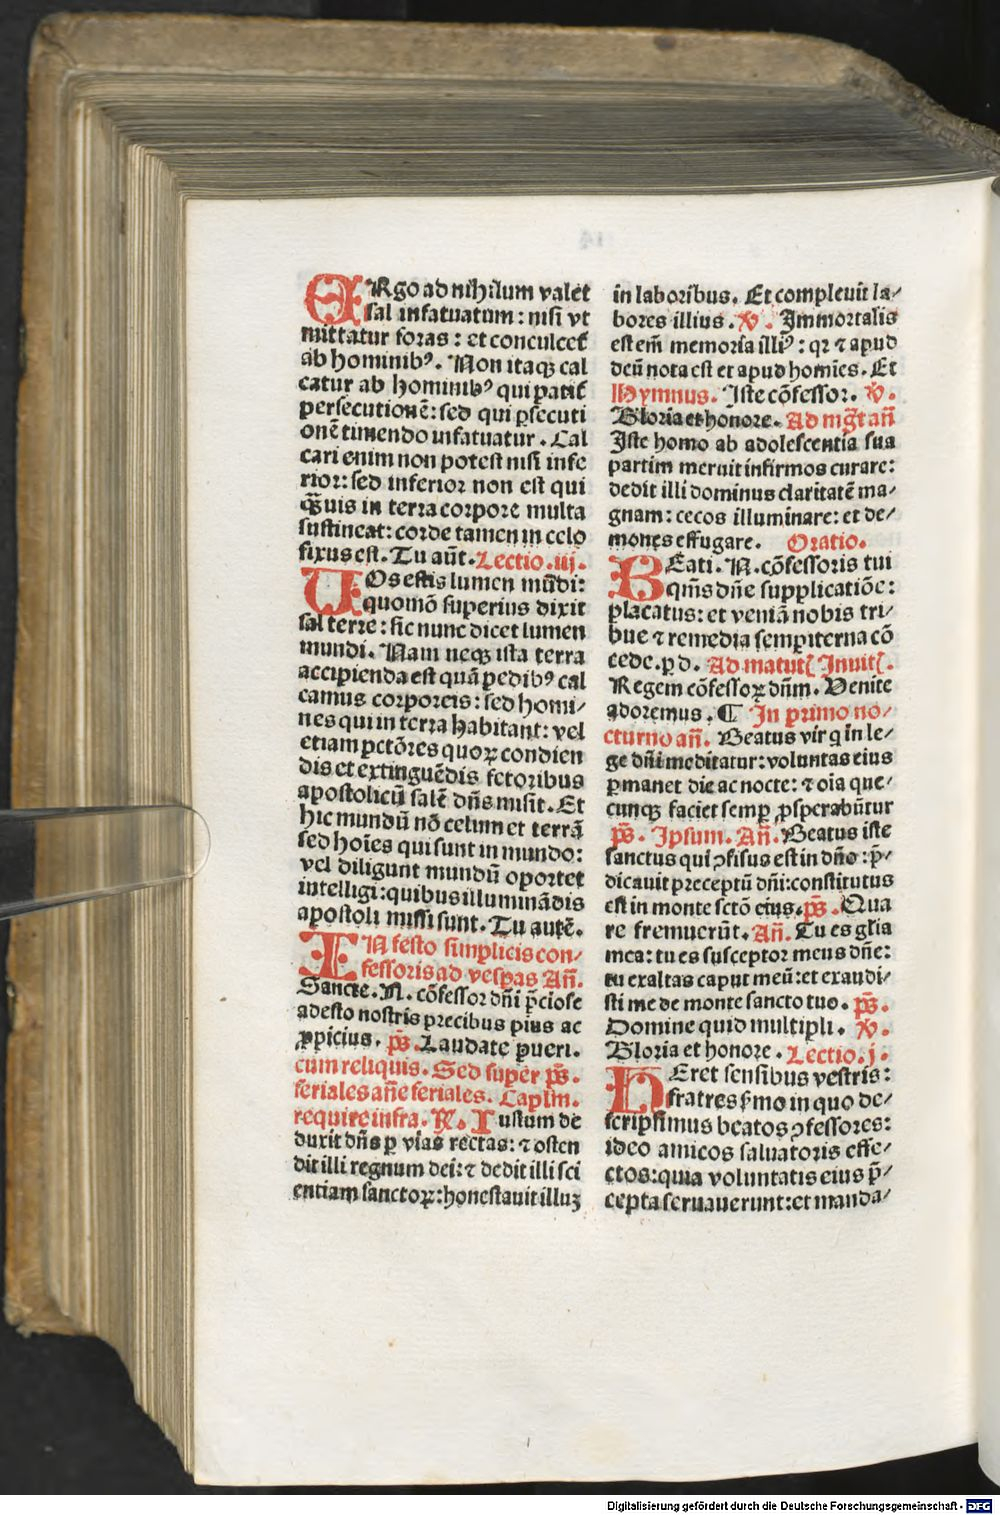 ERgo ad nihilum valet
sal infatuatum: nisi vt
mittatur foras: et conculcet᷑
ab hominibꝰ. Non itaqꝫ cal
catur ab hominibꝰ qui patit᷑
persecutionē: sed qui ꝑsecuti
onē timendo infatuatur. Cal
cari enim non potest nisi infe
rior: sed inferior non est qui
qᷓꝫuis in terra corpore multa
sustineat: corde tamen in celo
fixus est. Tu aūt. Lectio. iij.
VOs estis lumen mūdi:
quomō superius dixit
sal terre: sic nunc dicet lumen
mundi. Nam neqꝫ ista terra
accipienda est quā pedibꝰ cal
camus corporeis: sed homi⸗
nes qui in terra habitant: vel
etiam pctōres quoꝝ condien
dis et extinguēdis fetoribus
apostolicū salē dn̄s misit. Et
hic mundū nō celum et terrā
sed hoīes qui sunt in mundo:
vel diligunt mundū oportet
intelligi: quibus illuminādis
apostoli missi sunt. Tu autē.
IN festo simplicis con⸗
fessoris ad vesꝑas Añ.
Sancte. N. cōfessor dn̄i p̄ciose
adesto nostris precibus pius ac
ꝓpicius. ps̄. Laudate pueri.
cum reliquis. Sed super ps̄.
feriales añe feriales. Caplm̄.
require infra. ℟. Iustum de
duxit dn̄s ꝑ vias rectas: ⁊ osten
dit illi regnum dei: ⁊ dedit illi sci
entiam sanctoꝝ: honestauit illuꝫ
in laboribus. Et compleuit la⸗
bores illius. ℣. Immortalis
est em̄ memoria illiꝰ: qꝛ ⁊ apud
deū nota est et apud homīes. Et
Hymnus. Iste cōfessor. ℣.
Gloria et honore. Ad mg̃t añ
Iste homo ab adolescentia sua
partim meruit infirmos curare:
dedit illi dominus claritatē ma⸗
gnam: cecos illuminare: et de⸗
mones effugare. Oratio.
BEati. N. cōfessoris tui
qm̄s dn̄e supplicatiōe:
placatus: et veniā nobis tri⸗
bue ⁊ remedia sempiterna cō
cede. ꝑ d. Ad matut᷑ Inuit᷑.
Regem cōfessoꝝ dn̄m. Venite
adoremus. ¶ In primo no⸗
cturno añ. Beatus vir q in le⸗
ge dn̄i meditatur: voluntas eius
ꝑmanet die ac nocte: ⁊ oīa que⸗
cunqꝫ faciet semꝑ ꝓsperabūtur
ps̄. Ipsum. Añ. Beatus iste
sanctus qui ꝯfisus est in dn̄o: p̄⸗
dicauit preceptū dn̄i: constitutus
est in monte sctō eius. ps̄. Qua
re fremuerūt. Añ. Tu es glīa
mea: tu es susceptor meus dn̄e:
tu exaltas caput meū: et exaudi⸗
sti me de monte sancto tuo. ps̄.
Domine quid multipli. ℣.
Gloria et honore. Lectio. j.
HEret sensibus vestris:
fratres s̄mo in quo de⸗
scripsimus beatos ꝯfessores:
ideo amicos saluatoris effe⸗
ctos: quia voluntatis eius p̄⸗
cepta seruauerunt: et manda⸗
Digitalisierung gefördert durch die Deutsche Forschungsgemeinschaft - DFG